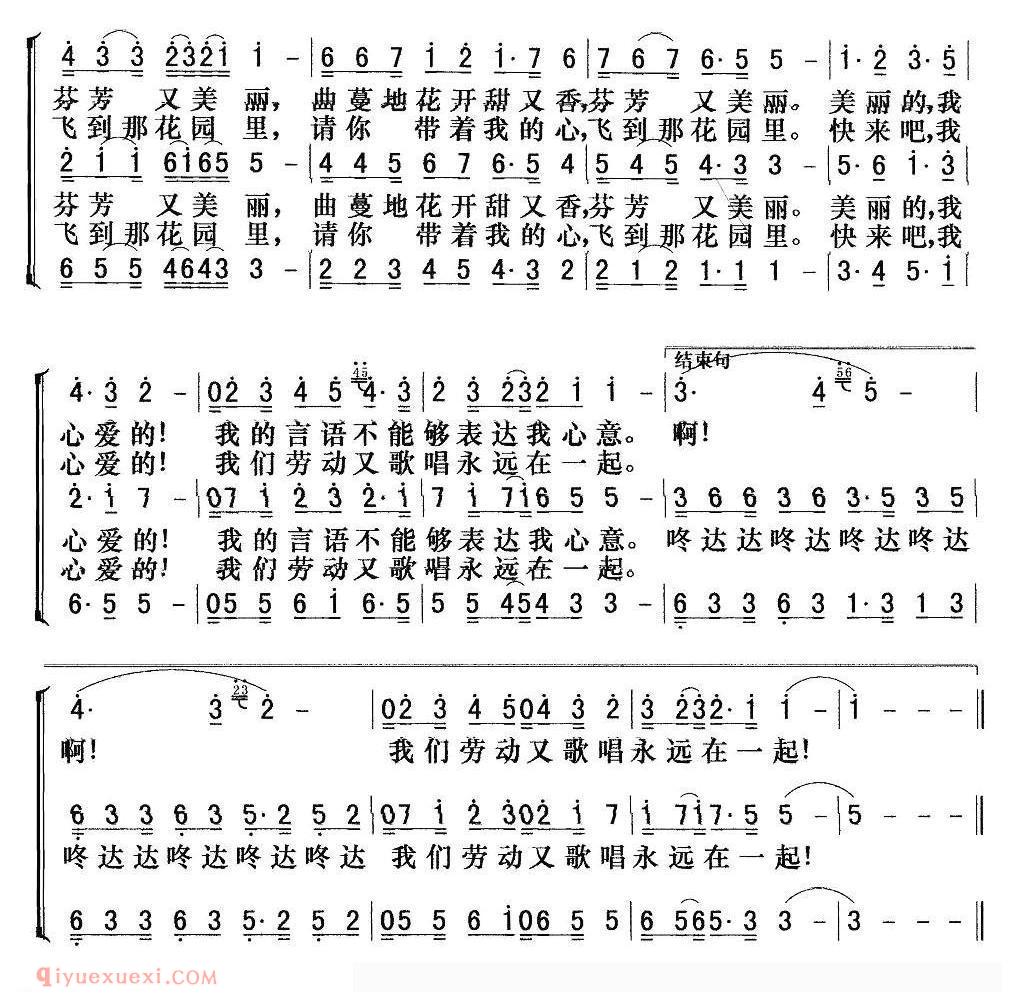 4 3 3 2321 1 - | 6 6 7 1 2 1·7 6 | 7 6 7 6·5 5 - | 1·2 3·5 |
芬芳 又美 丽, 曲蔓地花开甜又香,芬芳 又美丽。 美丽的,我
飞到那花园 里, 请你 带着我的心,飞到那花园里。 快来吧,我
2 1 1 6165 5 - | 4 4 5 6 7 6·5 4 | 5 4 5 4·3 3 - | 5·6 1·3 |
芬芳 又美 丽, 曲蔓地花开甜又香,芬芳 又美丽。 美丽的,我
飞到那花园 里, 请你 带着我的心,飞到那花园里。 快来吧,我
6 5 5 4643 3 - | 2 2 3 4 5 4·3 2 | 2 1 2 1·1 1 - | 3·4 5·1 |
结束句
4·3 2 - | 02 3 4 5 45 4·3 | 2 3 232 1 1 - | 3· 4 56 5 -
心爱的! 我的言语不能够表达我心意。 啊!
心爱的! 我们劳动又歌唱永远在一起。
2·1 7 - | 07 1 2 3 2·1 | 7 1 716 5 5 - | 3 6 6 3 6 3·5 3 5
心爱的! 我的言语不能够表达我心意。 咚达达咚达咚达咚达
心爱的! 我们劳动又歌唱永远在一起。
6·5 5 - | 05 5 6 1 6·5 | 5 5 454 3 3 - | 6 3 3 6 3 1·3 1 3
4· 3 23 2 - | 02 3 4 504 3 2 | 3 232·1 1 - | 1 - ‖
啊! 我们劳动又歌唱永远在一起!
6 3 3 6 3 5·2 5 2 | 07 1 2 302 1 7 | 1 717·5 5 - | 5 - ‖
咚达达咚达咚达咚达 我们劳动又歌唱永远在一起!
6 3 3 6 3 5·2 5 2 | 05 5 6 106 5 5 | 6 565·3 3 - | 3 - ‖
qiyuexuexi.COM